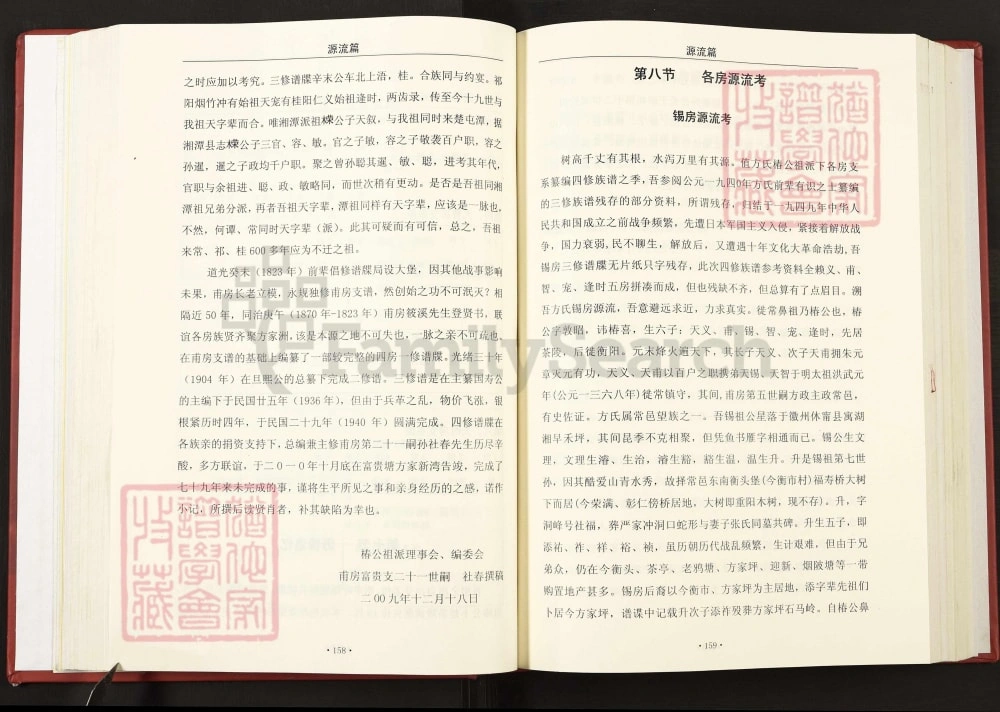 源流篇
之时应加以考究。三修谱牒辛末公车北上沿，桂。合族同与约宴。祁
阳烟竹冲有始祖天宠有桂阳仁义始祖逢时，两齿录，传至今十九世与
我祖天字辈而合。唯湘潭派祖嵘公子天叙，与我祖同时来楚屯潭，据
湘潭县志嵘公子三官、容、敏。官之子敏，容之子敬袭百户职，容之
孙暹，暹之子政均千户职。聚之曾孙聪其暹、敏、聪，进考其年代，
官职与余祖进、聪、政、敏略同，而世次稍有更动。是否是吾祖同湘
潭祖兄弟分派，再者吾祖天字辈，潭祖同样有天字辈，应该是一脉也。
不然，何谭、常同时天字辈（派）。此其可疑而有可信，总之，吾祖
来常、祁、桂 600 多年应为不迁之祖。
道光癸未（1823 年）前辈倡修谱牒局设大堡，因其他战事影响
未果，甫房长老立模，永现独修甫房支谱，然创始之功不可泯灭？相
隔近 50 年，同治庚午（1870 年-1823 年）甫房筱溪先生登贤书，联
谊各房族贤齐聚方家洲,该是本源之地不可失也，一脉之亲不可疏也。
在甫房支谱的基础上编纂了一部较完整的四房一修谱牒。光绪三十年
（1904 年）在旦熙公的总纂下完成二修谱。三修谱是在主纂国寿公
的主编下于民国廿五年（1936 年），但由于兵革之乱，物价飞涨，银
根紧历时四年，于民国二十九年（1940 年）圆满完成。四修谱牒在
各族亲的捐资支持下，总编兼主修甫房第二十一嗣孙社春先生历尽辛
酸，多方联谊，于二 0 一 0 年十月底在富贵塘方家新湾告竣，完成了
七十九年来未完成的事，谨将生平所见之事和亲身经历的之感，诺作
小记，所撰后读贤肖者，补其缺陷为幸也。
椿公祖派理事会、编委会
甫房富贵支二十一世嗣 社春撰稿
二 00 九年十二月十八日
·158·
源流篇
第八节 各房源流考
锡房源流考
树高千丈有其根，水泻万里有其源。值方氏椿公祖派下各房支
系纂编四修族谱之季，吾参阅公元一九四0年方氏前辈有识之士纂编
的三修族谱残存的部分资料，所谓残存，归结于一九四九年中华人
民共和国成立之前战争频繁，先遭日本军国主义入侵，紧接着解放战
争，国力衰弱,民不聊生，解放后，又遭遇十年文化大革命浩劫,吾
锡房三修谱牒无片纸只字残存，此次四修族谱参考资料全赖义、甫、
智、宠、逢时五房拼凑而成，但也残缺不齐，但总算有了点眉目。溯
吾方氏锡房源流，吾意避远求近，力求真实。徙常鼻祖乃椿公也，椿
公字敦昭，讳椿喜，生六子：天义、甫、锡、智、宠、逢时，先居
茶陵、后徙衡阳、元末烽火遍天下，其长子天义、次子天甫拥朱元
章灭元有功，天义、天甫以百户之职携弟天锡、天智于明太祖洪武元
年(公元一三六八年)徙常镇守，其间,甫房第五世嗣方政主政常邑，
有史佐证。方氏属常邑望族之一。吾锡祖公星落于徽州休甯县寓湖
湘早禾坪，其间昆季不克相聚，但凭鱼书雁字相通而已。锡公生文
理，文理生濬、生治，濬生豁，豁生温，温生升。升是锡祖第七世
孙，因其酷爱山青水秀，故择常邑东南衡头堡(今衡市村)福寿桥大树
下而居(今荣满、彰仁傍桥居地，大树即重阳木树，现不存)。升，字
洞峰号社福，葬严家冲洞口蛇形与妻子张氏同墓共碑。升生五子，即
添祐、祚、祥、裕、祯，虽历朝历代战乱频繁，生计艰难，但由于兄
弟众，仍在今衡头、茶亭、老鸦塘、方家坪、迎新、烟陂塘等一带
购置地产甚多。锡房后裔以今衡市、方家坪为主居地，添字辈先祖们
卜居今方家坪，谱谍中记载升次子添祚殁葬方家坪石马岭。自椿公鼻
·159·
FamilySearch